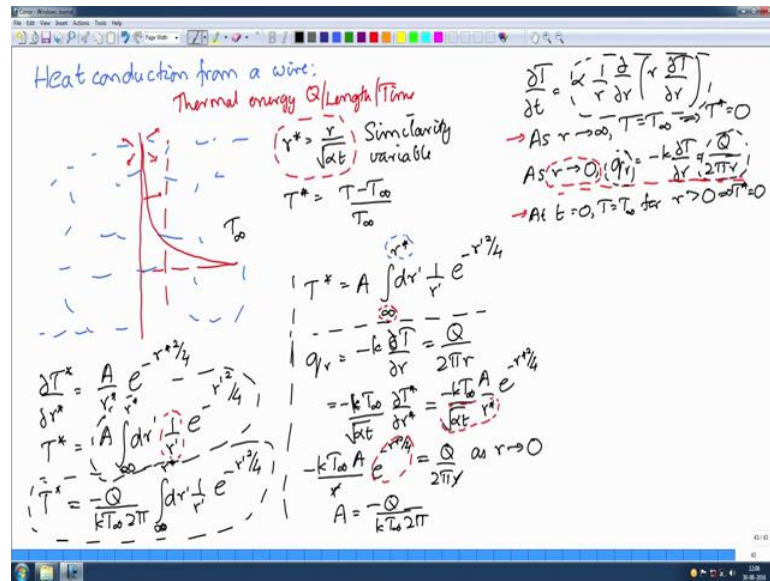 Comer - Windows Journal
File Edit View Insert Actions Tools Help
Page Width
Heat conduction from a wire:
Thermal energy Q/Length/Time
T∞
r* = r/√αt Similarity variable
T* = (T-T∞)/T∞
∂T/∂t = α 1/r ∂/∂r (r ∂T/∂r)
→ As r→∞, T=T∞ ⇒ T*=0
As r→0, (qr) = -k ∂T/∂r = Q/2πr
→ At t=0, T=T∞ for r>0 ⇒ T*=0
T* = A ∫∞^r* dr' 1/r' e^(-r'²/4)
qr = -k ∂T/∂r = Q/2πr
= -kT∞/√αt ∂T*/∂r* = -kT∞/√αt A/r* e^(-r*²/4)
-kT∞A/r e^(-r*²/4) = Q/2πr as r→0
A = -Q/kT∞2π
∂T*/∂r* = A/r* e^(-r*²/4)
T* = A ∫∞^r* dr' 1/r' e^(-r'²/4)
T* = -Q/kT∞2π ∫∞^r* dr' 1/r' e^(-r'²/4)
43/43
43
12:06